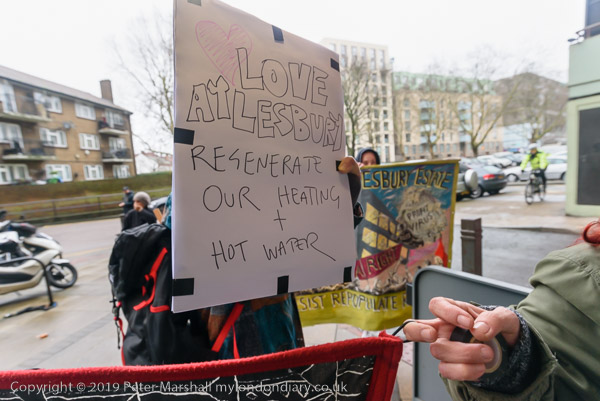 LOVE
AYLESBURY
REGENERATE
OUR HEATING
+
HOT WATER
ESBURY ESTATE
SIST REPOPULATE
Copyright © 2019 Peter Marshall mylondondiary.co.uk